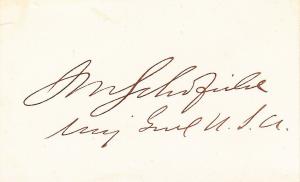 JM Schofield
Maj Genl U.S.A.